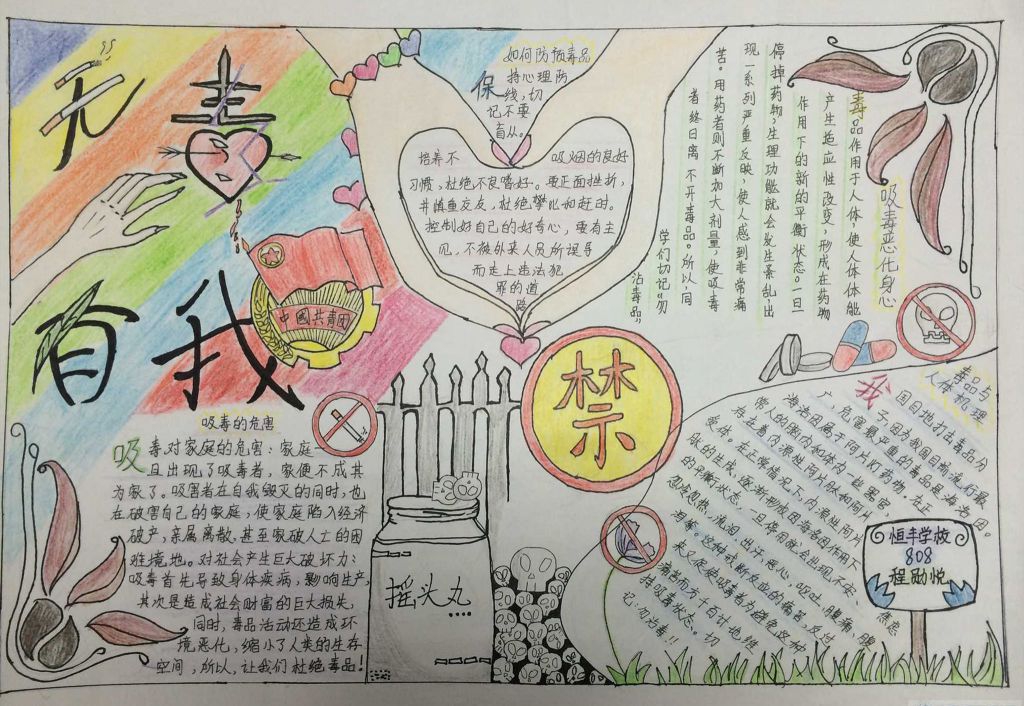 无毒
有我
中國共青团
吸毒的危害
吸毒对家庭的危害：家庭一
旦出现了吸毒者，家便不成其
为家了。吸害者在自我毁灭的同时，也
在破害自己的家庭，使家庭陷入经济
破产，亲属离散，甚至家破人士的困
难境地。对社会产生巨大破坏力：
吸毒首先导致身体疾病，影响生产，
其次是造成社会财富的巨大损失，
同时，毒品活动还造成环
境恶化，缩小了人类的生存
空间，所以，让我们杜绝毒品！
如何防预毒品
保持心理防
线，切
记不要
盲从。
培养不吸烟的良好
习惯，杜绝不良嗜好。要正面挫折，
并慎重交友，杜绝攀比和赶时。
控制好自己的好奇心，要有主
见，不被外来人员所误导
而走上违法犯
罪的道
路
禁
摇头丸
吸毒恶化身心
毒品作用于人体，使人体体能
产生适应性改变，形成在药物
作用下的新的平衡状态。一旦
停掉药物，生理功能就会发生紊乱，出
现一系列严重反映，使人感到非常痛
苦。用药者则不断加大剂量，使吸毒
者终日离不开毒品。所以，同
学们切记勿
沾毒品”
毒品与
人体机理
我国目地打击毒品分
子，因为我国目前流行最
广，危害最严重的毒品是海洛因。
海洛因属于阿片灯药物。在正
常人的脑内和体内一些器官，
存在着内源性阿片肽和阿片
爱体。在正常情况下，内源性阿片
肽的生成，逐渐形成因海者因作用下
的平衡状态，一旦停用就会出现不安、焦虑
忽冷忽热、流泪、出汗、恶心、呕吐、腹痛、腹
泻等。这种戒断反应的痛苦，反过
来又促使吸毒者为避免这种
痛苦而千方百计地维
持吸毒状态。切
记：勿沾毒！！
恒丰学校
808
程勋悦